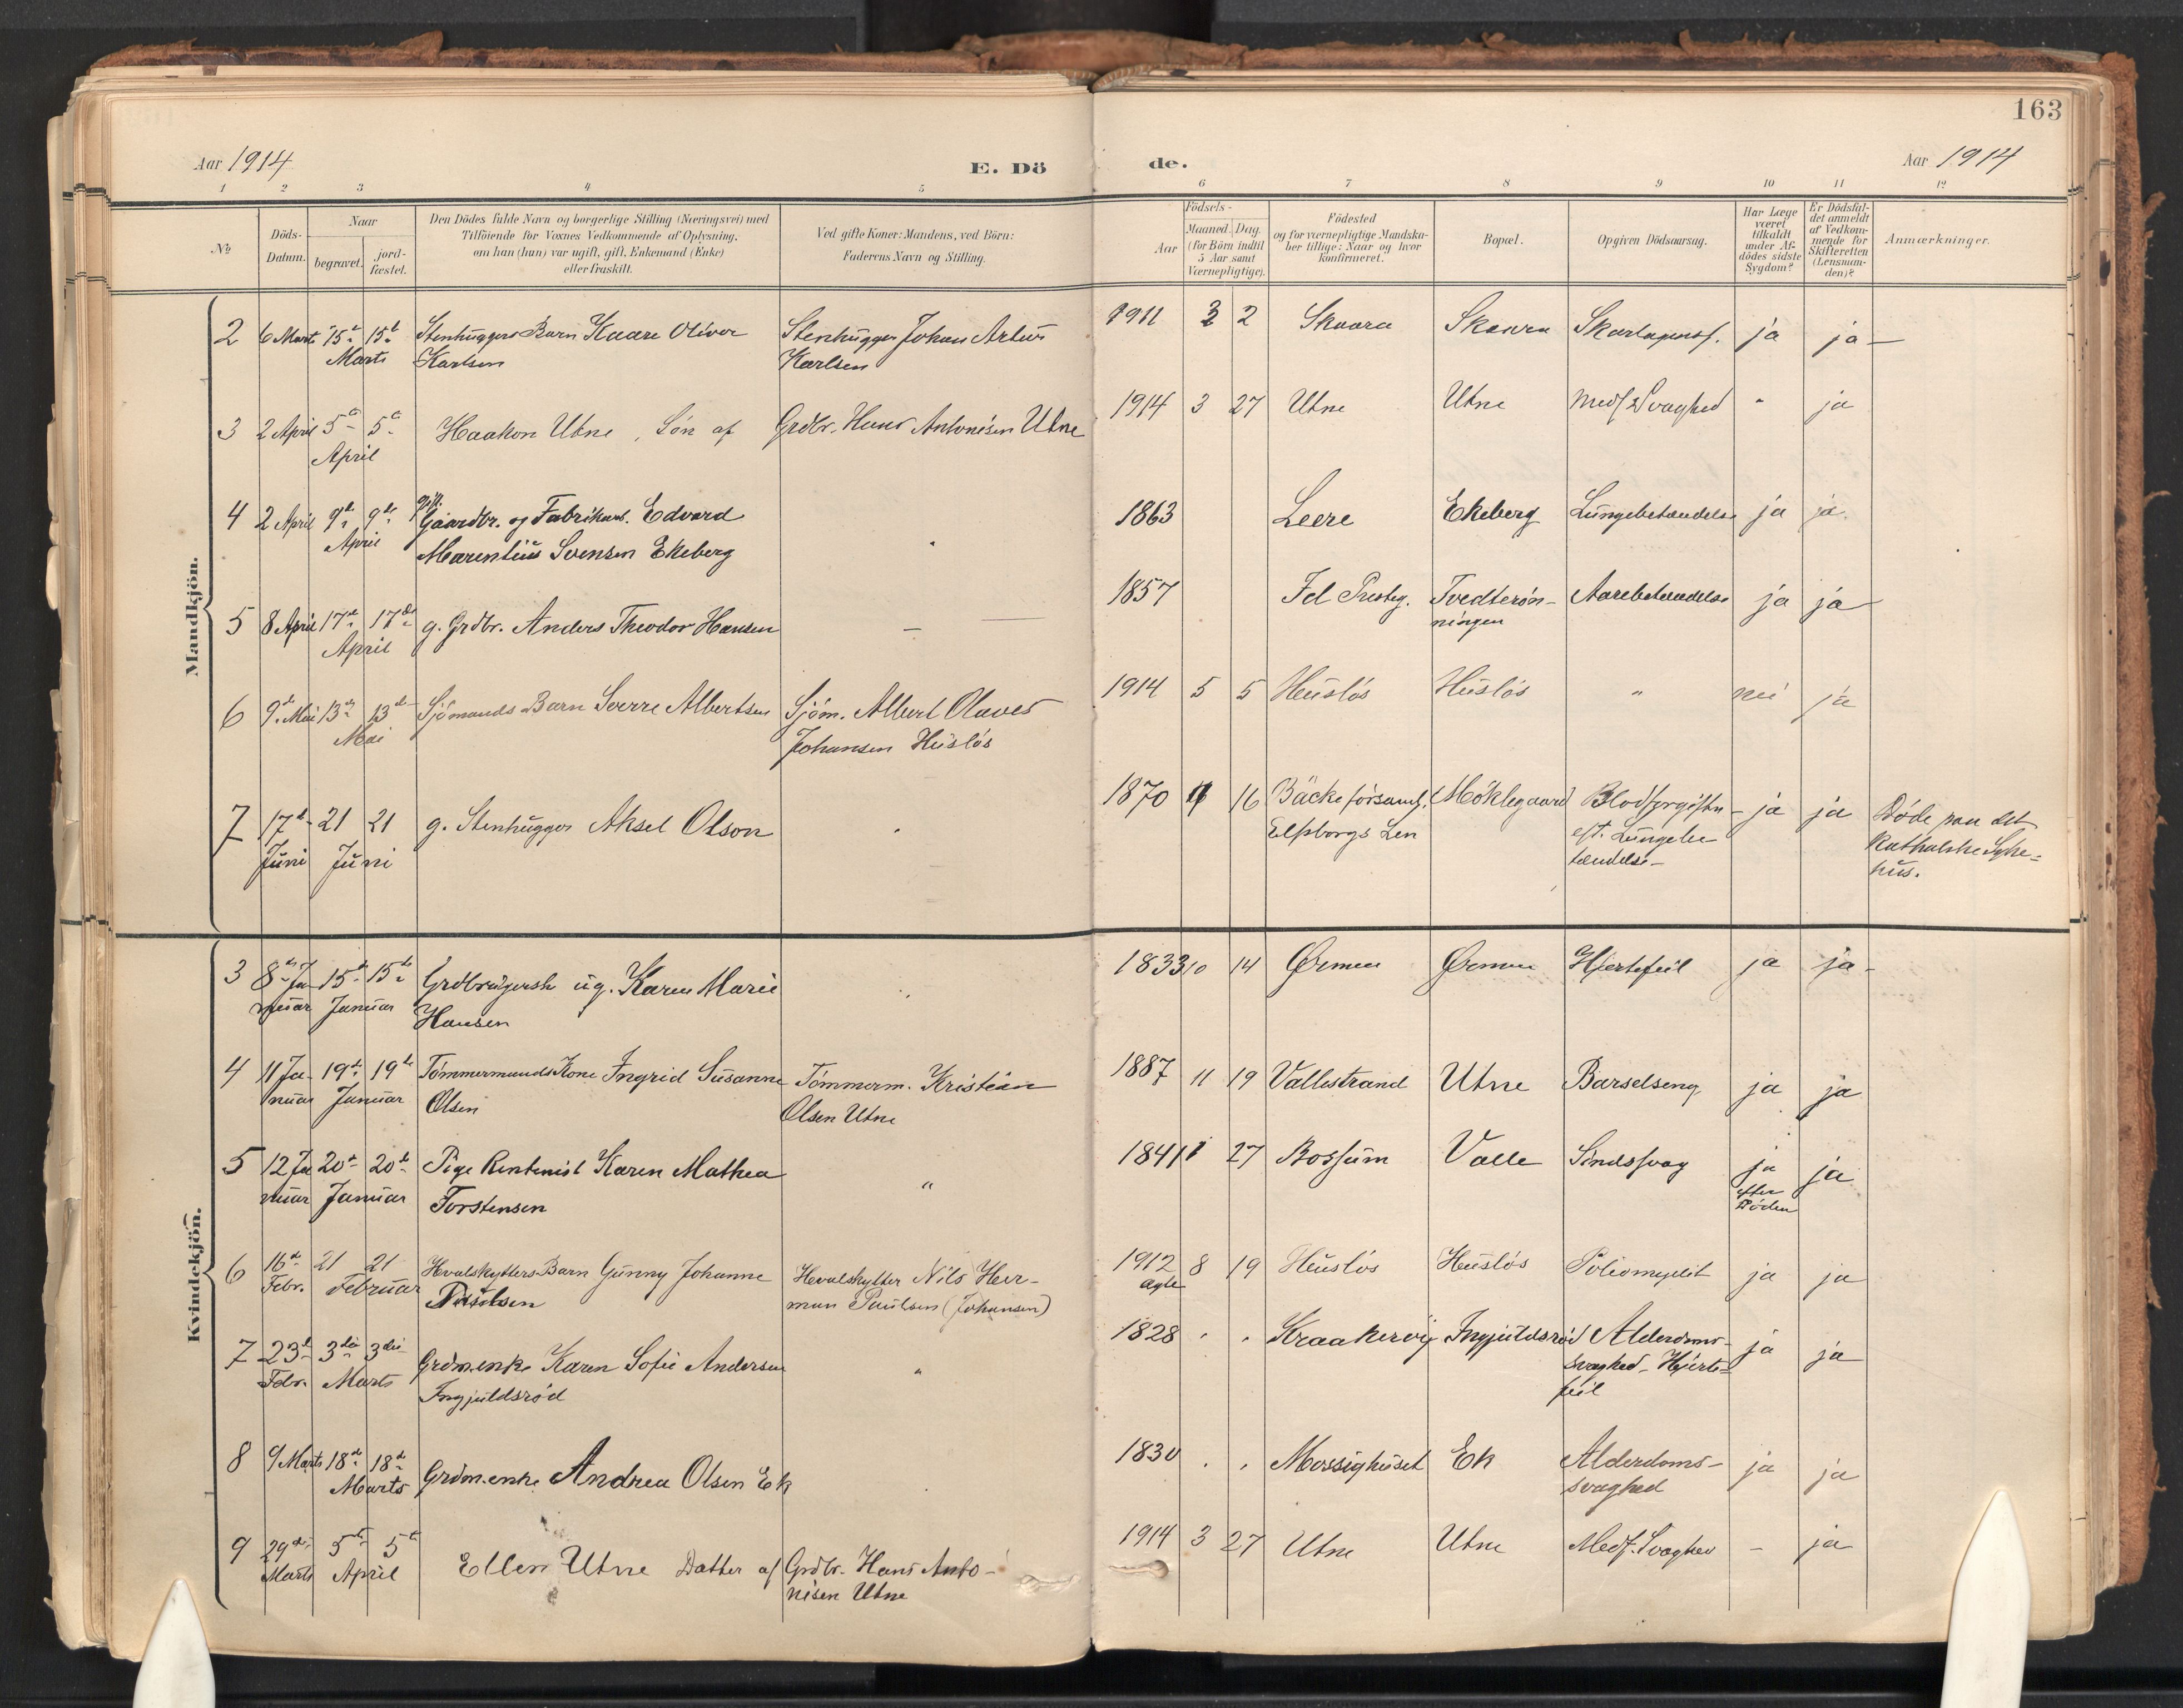 163
Aar 1914
E. Dö
de.
Aar 1914
1 2 3 4 5 6 7 8 9 10 11 12
№
Döds-
Datum.
Naar
begravet.
jord-
fæstet.
Den Dödes fulde Navn og borgerlige Stilling (Næringsvei) med
Tilföiende for Voxnes Vedkommende af Oplysning,
om han (hun) var ugift, gift, Enkemand (Enke)
eller fraskilt.
Ved gifte Koner: Mandens, ved Börn:
Faderens Navn og Stilling.
Födsels-
Aar
Maaned. Dag.
(for Börn indtil
5 Aar samt
Værnepligtige).
Födested
og for værnepligtige Mandska-
ber tillige: Naar og hvor
konfirmeret.
Bopæl.
Opgiven Dödsaarsag.
Har Læge
været
tilkaldt
under Af-
dödes sidste
Sygdom?
Er Dödsfal-
det anmeldt
af Vedkom-
mende for
Skifteretten
(Lensman-
den)?
Anmærkninger.
Mandkjön.
2 6 Marts 15de 15de Stenhuggers Barn Kaare Oliver Stenhugger Johan Artur 1911 3 2 Skaara Skaara Skarlagensf. ja ja
Marts Karlsen Karlsen
3 2 April 5te 5te Haakon Utne, Sön af Grdbr. Hans Antonisen Utne 1914 3 27 Utne Utne Medf. Svaghed - ja
April
4 2 April 9de 9de gift. Gaardbr. og Fabrikant. Edvard 1863 Leere Ekeberg Lungebetændelse ja ja
April Marentius Svensen Ekeberg
5 8 April 17de 17de g. Grdbr. Anders Theodor Hansen — 1857 Id Presteg. Tvedterön- Aarebetændelse ja ja
April ningen
6 9de Mai 13de 13de Sjömands Barn Sverre Albertsen Sjöm. Albert Olaves 1914 5 5 Huslös Huslös " nei ja
Mai Johansen Huslös
7 17de 21 21 g. Stenhugger Aksel Olson 1870 16 Bäcke församl. Moklegaard Blodforgiftn- ja ja Döde paa det
Juni Juni Elfsborgs Len eft. Lungebe- katholske Syke-
tændelse hus.
Kvindekjön.
3 8de Ja- 15de 15de Grdbrugersk ug. Karen Marie 1833 10 14 Ørmen Ørmen Hjertefeil ja ja
nuar Januar Hansen
4 11 Ja- 19de 19de Tömmermands Kone Ingrid Susanne Tömmerm. Kristian 1887 11 19 Vallestrand Utne Barselseng ja ja
nuar Januar Olsen Olsen Utne
5 12 Ja 20de 20de Pige Rentenist Karen Mathea " 1841 1 27 Bossum Valle Sindssvag ja ja
nuar Januar Torstensen efter
Döden
6 16de 21 21 Hvalskytters Barn Gunny Johanne Hvalskytter Nils Her- 1912 8 19 Huslös Huslös Poliomyelit ja ja
Febr. Februar man Paulsen (Johansen) ægte
7 23de 3die 3die Grdm.enke Karen Sofie Andersen " 1828 . . Kraakeröy Ingjuldsröd Alderdoms- ja ja
Febr. Marts Ingjuldsröd svaghed - Hjerte-
feil
8 9 Marts 18de 18de Grdm.enke Andrea Olsen Ek 1830 . . Mossighuset Ek Alderdoms- ja ja
Marts svaghed
9 29de 5te 5te Ellen Utne Datter af Grdbr. Hans Anto- 1914 3 27 Utne Utne Medf. Svaghed - ja
Marts April nisen Utne